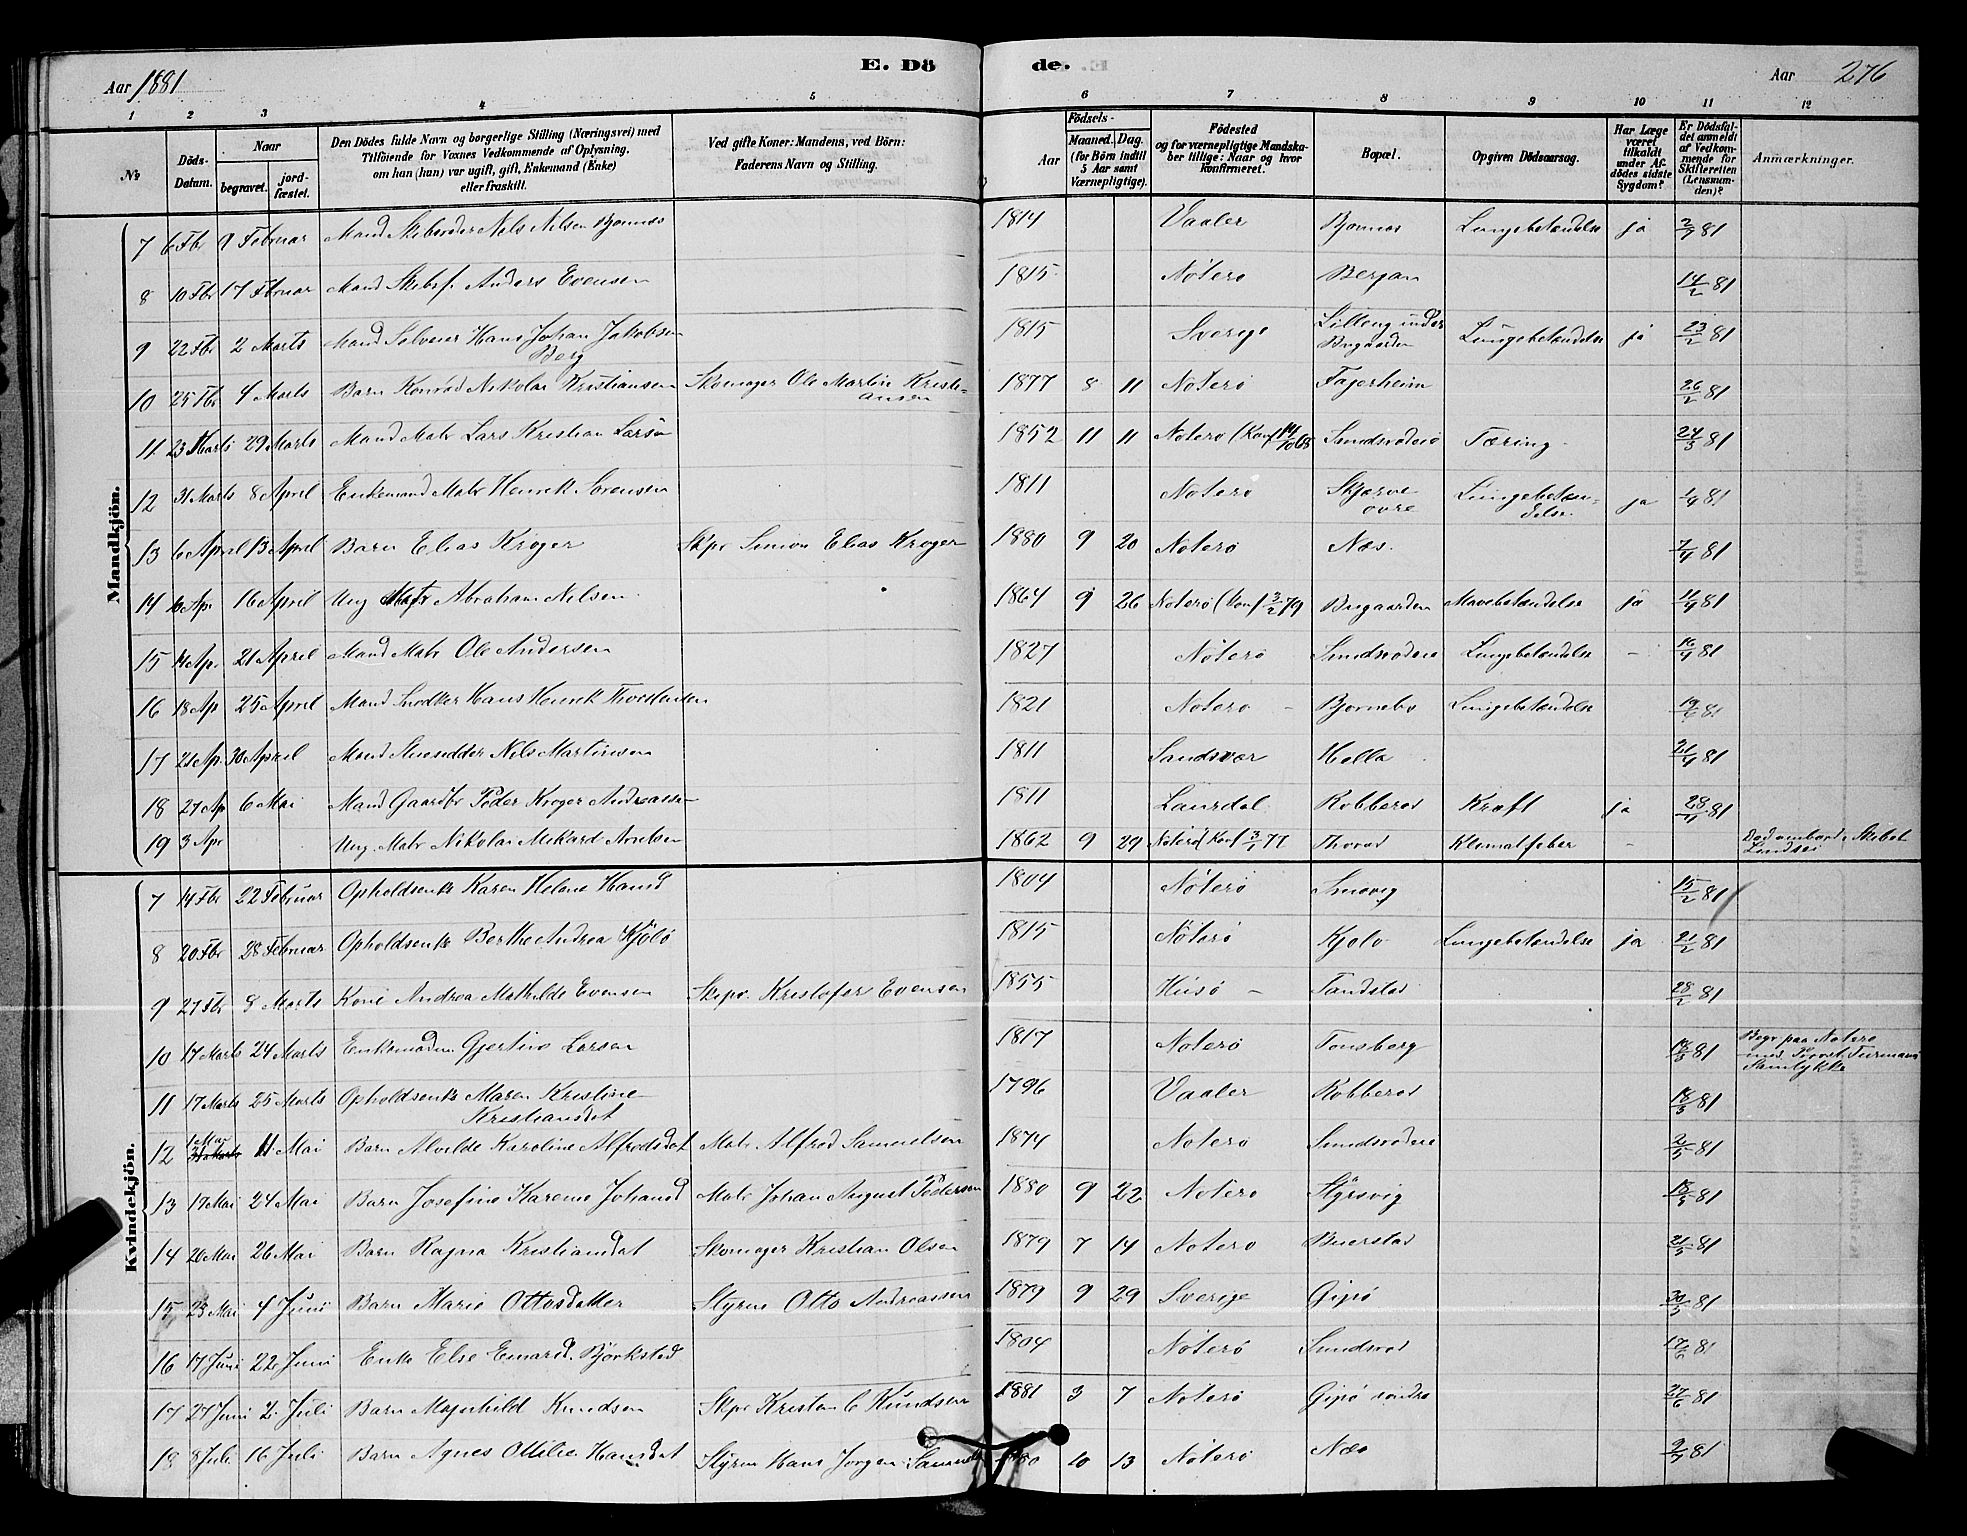 Aar 1881 E. Dö de. Aar 276
1 2 3 4 5 6 7 8 9 10 11 12
№
Döds-Datum.
Naar
begravet.
jordfæstet.
Den Dödes fulde Navn og borgerlige Stilling (Næringsvei) med
Tilföiende for Voxnes Vedkommende af Oplysning,
om han (hun) var ugift, gift, Enkemand (Enke)
eller fraskilt.
Ved gifte Koner: Mandens, ved Börn:
Faderens Navn og Stilling.
Födsels-
Aar
Maaned. Dag.
(for Börn indtil
5 Aar samt
Værnepligtige).
Födested
og for værnepligtige Mandska-
ber tillige: Naar og hvor
konfirmeret.
Bopæl.
Opgiven Dödsaarsag.
Har Læge
været
tilkaldt
under Af-
dödes sidste
Sygdom?
Er Dödsfal-
det anmeldt
af Vedkom-
mende for
Skifteretten
(Lensman-
den)?
Anmærkninger.
Mandkjön.
7 6 Fbr 9 Februar Mand Nels Nilsen Bjonnes 1814 Vaaler Bjonnes Lungebetændelse ja 81
8 10 Fbr 17 Fbruar Mand Skibsf. Anders Evensen 1815 Nöterö Bergan 14/2 81
9 22 Fbr 2 Marts Mand Hans Johan Jakobsen Berg 1815 Sverige under Bugaarden Lungebetændelse ja 23/2 81
10 25 Fbr 4 Marts Barn Konrad Nikolai Kristiansen Skomager Ole Martin Kristi-
ansen 1877 8 11 Nöterö Fagerheim 26/2 81
11 23 Marts 29 Marts Mand Matr Lars Kristian Larsen 1852 11 11 Nöterö (Konf Sundsrödeie Tæring 24/3 81
12 31 Marts 8 April Enkemand Matr Henrik Sörensen 1811 Nöterö Skjerve övre Lungebetæn-
delse. ja 1/4 81
13 6 April 13 April Barn Elias Kröger Skpr Simon Elias Kröger 1880 9 20 Nöterö Næs. 7/4 81
14 Ap 16 April Ung Matr Abraham Nilsen 1864 9 26 Nöterö (Konf 79 Bugaarden Mavebetændelse ja 11/4 81
15 Ap. 21 April Mand Matr Ole Andersen 1827 Nöterö Sundsrödeie Lungebetændelse - 16/4 81
16 18 Ap 25 April Mand Snedker Hans Henrik 1821 Nöterö - Bjornebo Lungebetændelse 81
17 21 Ap 30 April Mand Nils Martinsen 1811 Sandsvær Holla 21/4 81
18 27 Ap 6 Mai Mand Gaardbr Peder Kröger Andreassen 1811 Laurdal Robberød Kræft ja 28/4 81
19 3 Apr Ung. Matr Nikolai Mekard 1862 9 29 Nöterö (Konf 77 Thorød Klimatfeber - Död ombord i Skibet
Kvindekjön.
7 14 Fbr 22 Februar Opholdsenke Karen Helene Hansd 1804 Nöterö Smevig 15/2 81
8 20 Fbr 28 Februar Opholdsenke Berthe Andrea Kjölö 1815 Nöterö Kjölö Lungebetændelse ja 21/2 81
9 27 Fbr 8 Marts Kone Andrea Mathilde Evensen Skpr. Kristofer Evensen 1855 Husö - Tandstad 28/2 81
10 17 Marts 24 Marts Gjertine Larsen 1817 Nöterö Tönsberg 18/3 81 Begr paa Nöterö
med Provst
Samtykke
11 17 Marts 25 Marts Opholdsenke Maren Kristine
Kristiansdat 1796 Vaaler Robberød 18/3 81
12 1 Mai 11 Mai Barn Alvilde Karoline Alfredsdat Matr Alfred Samuelsen 1874 Nöterö Sundsrödeie 2/5 81
13 17 Mai 24 Mai Barn Josefine Karene Johansd Matr Johan August Pedersen 1880 9 22 Nöterö Styrsvig 18/5 81
14 20 Mai 26 Mai Barn Ragna Kristiansdat Skomager Kristian Olsen 1879 7 14 Nöterö Buerstad 21/5 81
15 Mai 4 Juni Barn Marie Ottosdatter Styrm Otto Andreassen 1879 9 29 Sverige Gipö 30/5 81
16 17 Juni 22 Juni Enke Else Einarsd. Björkstad 1804 Nöterö Sundsrød 17/6 81
17 27 Juni 2 Juli Barn Magnhild Knudsen Skpr Kristen C Knudsen 1881 3 7 Nöterö Gipö söndre 27/6 81
18 8 Juli 16 Juli Barn Agnes Ottilie Hansdat Styrm Hans Jörgen 1880 10 13 Nöterö Næs 9/7 81